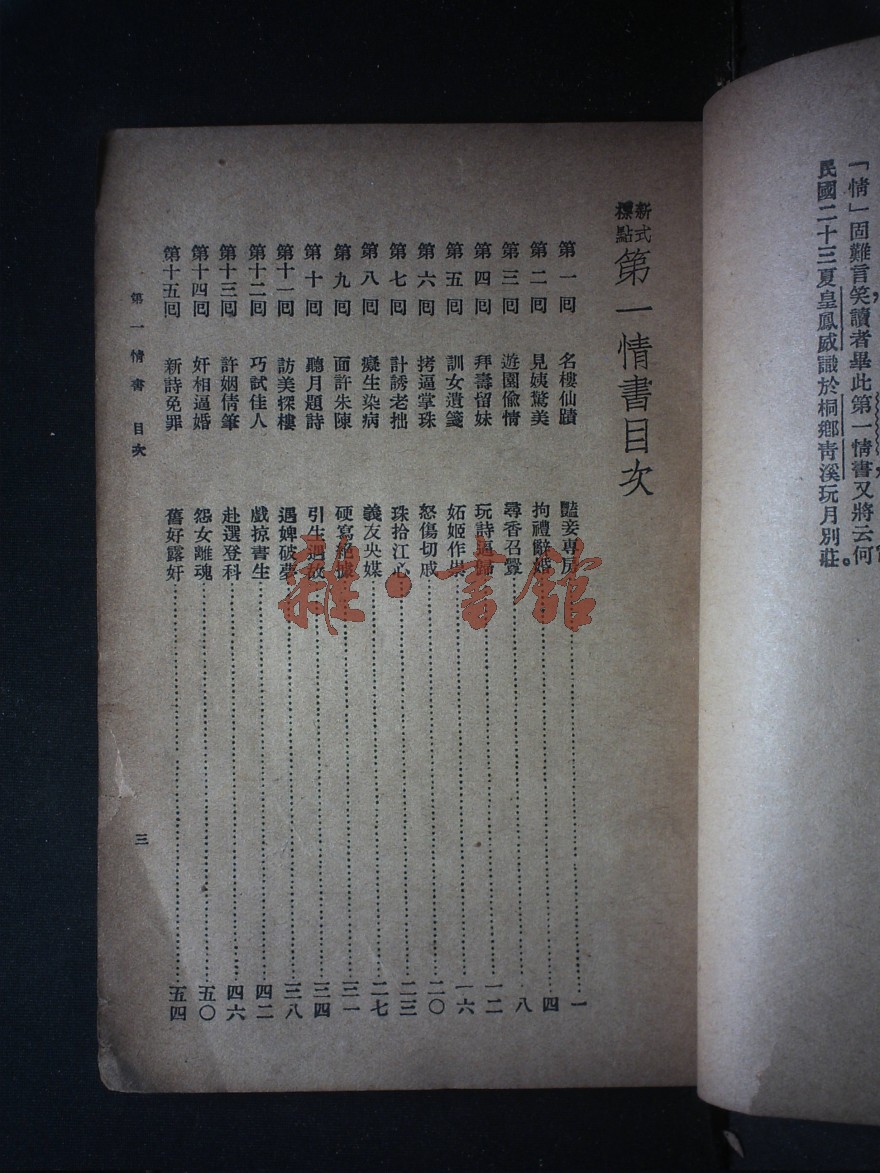 「情」固難言笑讀者畢此第一情書又將云何
民國二十三夏皇鳳威識於桐鄉青溪玩月別莊。
新式標點 第一情書目次
第一回 名樓仙蹟 豔妾專房 一
第二回 見姨驚美 拘禮辭婚 四
第三回 遊園偷情 尋香召釁 八
第四回 拜壽留妹 玩詩逼歸 一二
第五回 訓女遺箋 妬姬作祟 一六
第六回 拷逼掌珠 怒傷切戚 二〇
第七回 計誘老拙 珠拾江心 二三
第八回 癡生染病 義友央媒 二七
第九回 面許朱陳 硬寫絕據 三一
第十回 聽月題詩 引生遇故 三四
第十一回 訪美探樓 遇婢破夢 三八
第十二回 巧試佳人 戲掠書生 四二
第十三回 許姻倩筆 赴選登科 四六
第十四回 奸相逼婚 怨女離魂 五〇
第十五回 新詩免罪 舊好露奸 五四
第一情書 目次
三
雜·書館